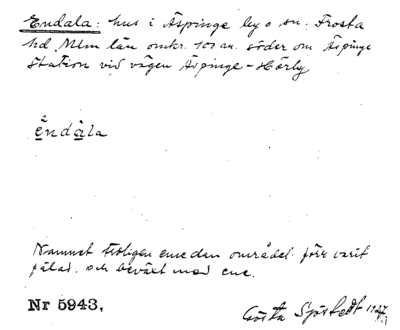 Endala: hus i Äspinge by o sn. Frosta
hd. Mlm län omkr. 100 m. söder om Äspinge
station vid vägen Äspinge-Hörby
èndàla
Namnet troligen emedan området förr varit
och beväxt med ene.
Nr 5943.
Gösta Sjöstedt 1927